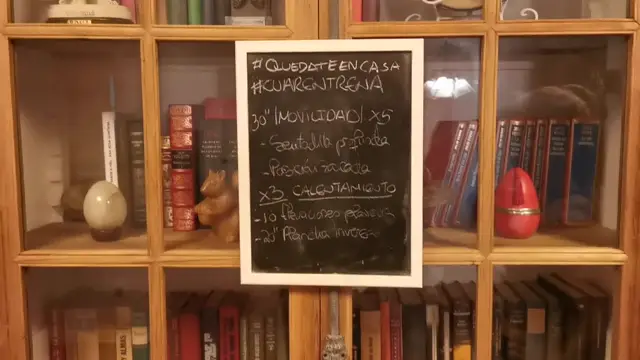 #QUEDATEENCASA
#CUARENTRENA
30" /MOVILIDAD/ X5
- Sentadilla profunda
- Posición
X3 CALENTAMIENTO
- 10 flexiones
- 20" Plancha inversa